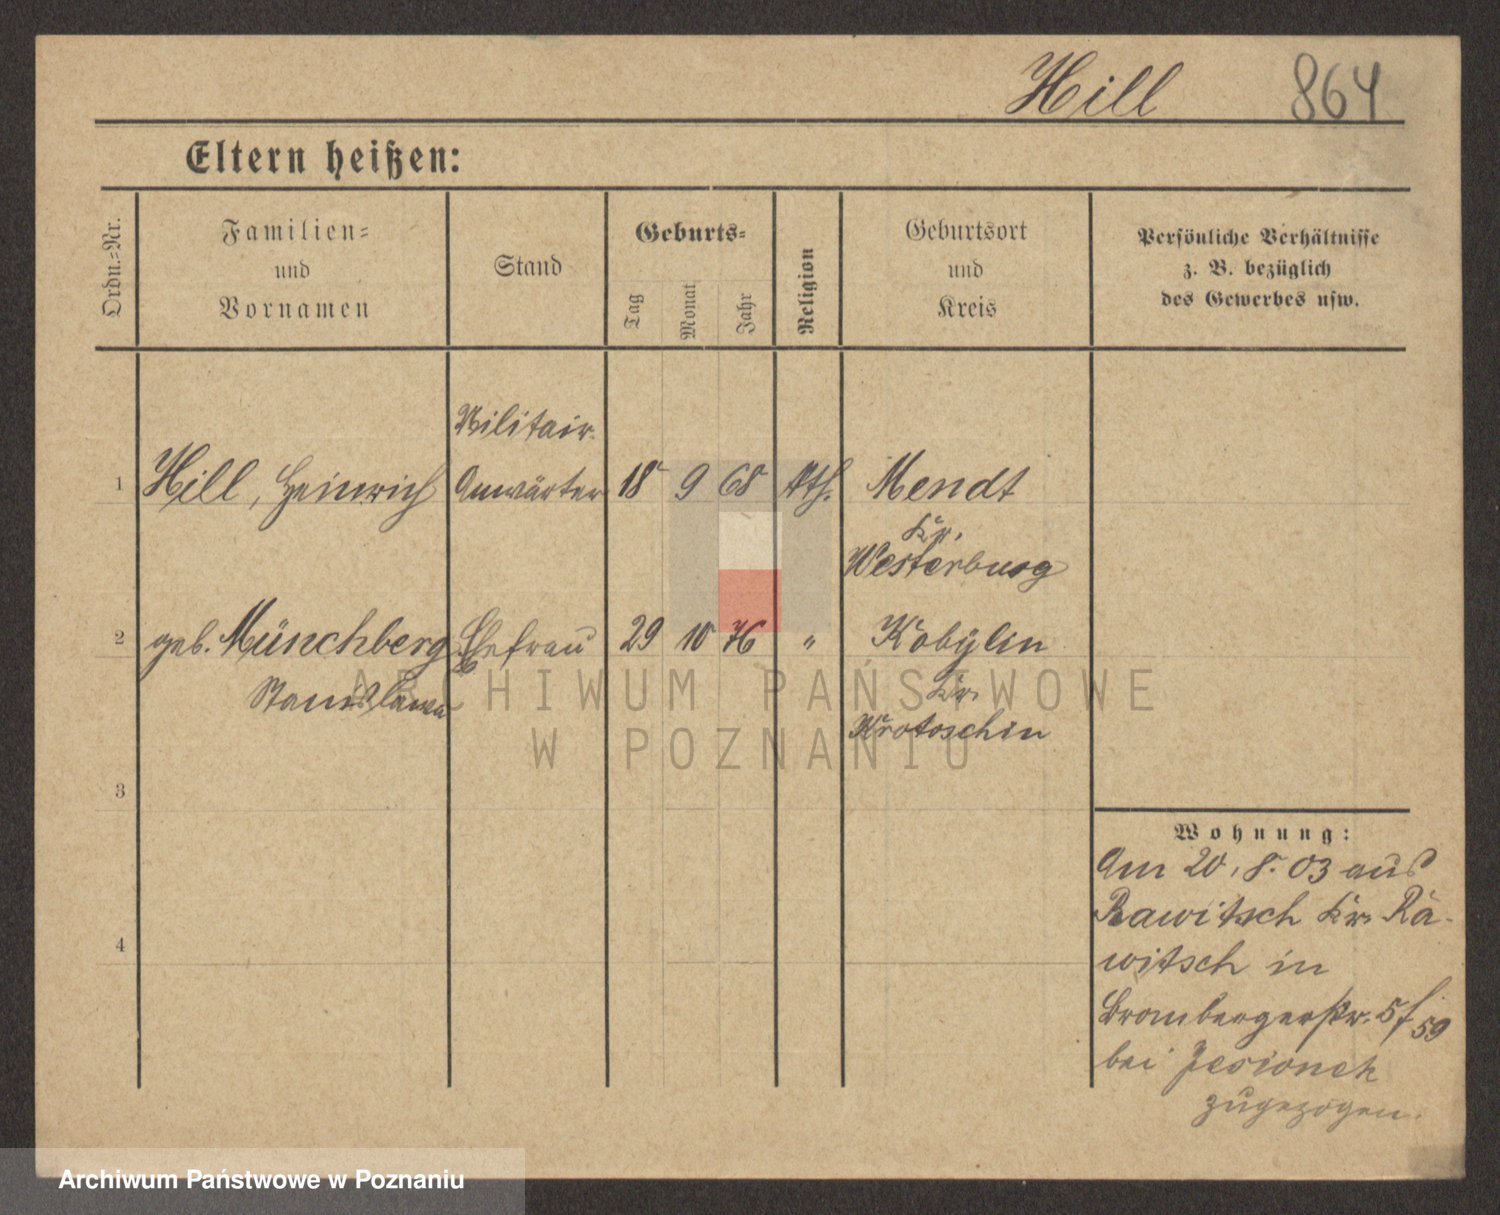 Hill 864
Eltern heißen:
Ordn.-Nr.
Familien-
und
Vornamen
Stand
Geburts-
Tag
Monat
Jahr
Religion
Geburtsort
und
Kreis
Persönliche Verhältnisse
z. B. bezüglich
des Gewerbes usw.
Militair-
1 Hill, Heinrich Anwärter 18 9 68 Kth. Mendt
Kr.
Westerburg
2 geb. Münchberg Ehefrau 29 10 76 " Kobylin
Stanislawa Kr.
Krotoschin
3
4
Wohnung:
Am 20.8.03 aus
Rawitsch Kr. Ra-
witsch in
Brombergerstr. 5/59
bei Jesionek
zugezogen.
ARCHIWUM PAŃSTWOWE
W POZNANIU
Archiwum Państwowe w Poznaniu